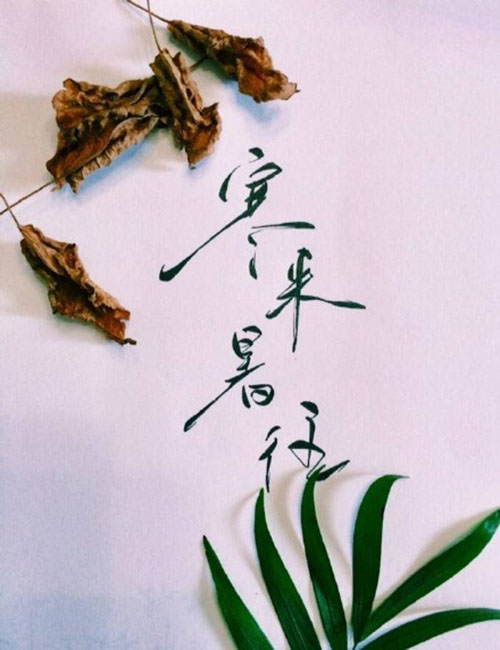 寒来暑往